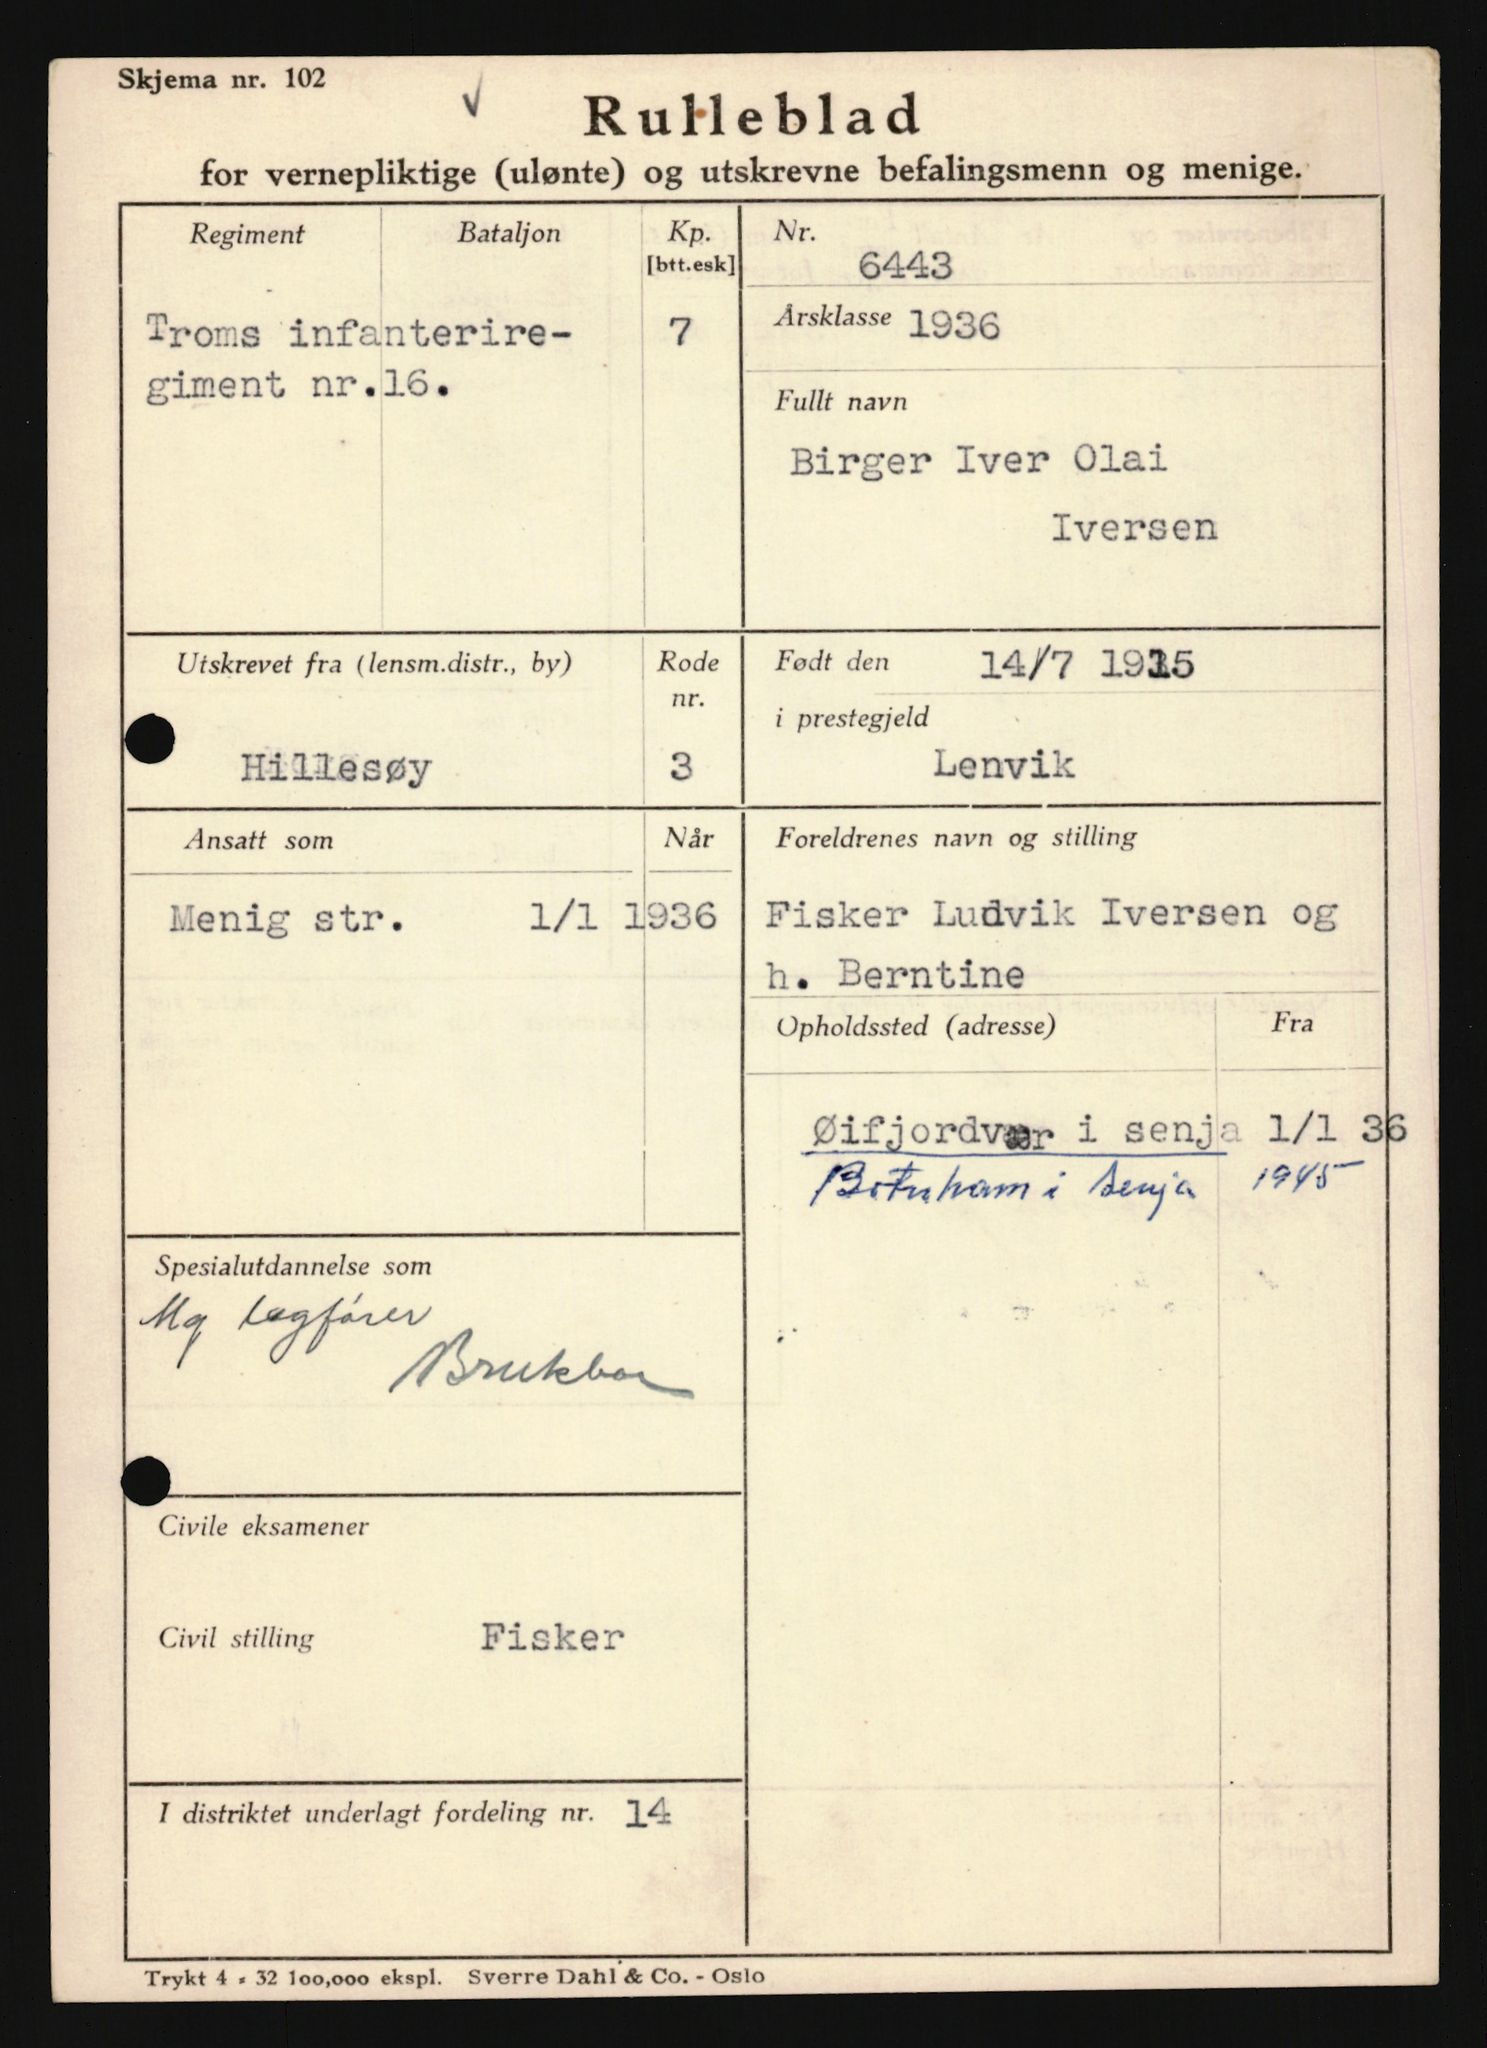 Skjema nr. 102
Rulleblad
for vernepliktige (ulønte) og utskrevne befalingsmenn og menige.
Regiment Bataljon Kp.
[btt.esk]
Troms infanterire- 7
giment nr.16.
Nr.
6443
Årsklasse 1936
Fullt navn
Birger Iver Olai
Iversen
Utskrevet fra (lensm.distr., by) Rode
nr.
Hillesøy 3
Født den 14/7 1915
i prestegjeld
Lenvik
Ansatt som Når
Menig str. 1/1 1936
Foreldrenes navn og stilling
Fisker Ludvik Iversen og
h. Berntine
Opholdssted (adresse) Fra
Øifjordvær i senja 1/1 36
Botnhamn i Senja 1945
Spesialutdannelse som
Mg lagfører
Brukbar
Civile eksamener
Civil stilling Fisker
I distriktet underlagt fordeling nr. 14
Trykt 4 - 32 100,000 ekspl. Sverre Dahl & Co. - Oslo